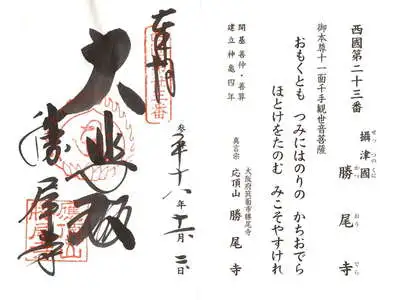 西國第二十三番
攝津國 勝尾寺
せっつのくに かつおうでら
御本尊十一面千手観世音菩薩
おもくとも つみにはのりの かちおでら
ほとけをたのむ みこそやすけれ
大阪府箕面市勝尾寺
真言宗 応頂山 勝尾寺
開基善仲・善算
建立神亀四年
奉拝
大悲殿
勝尾寺